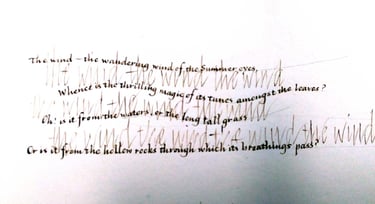 The wind – the wandering wind of the Summer eves,
the wind the wind the wind the wind
Whence is the thrilling magic of its tunes amongst the leaves?
the wind the wind the wind
Oh! is it from the waters, or the long tall grass
the wind the wind the wind the wind the wind
Or is it from the hollow rocks through which its breathings pass?